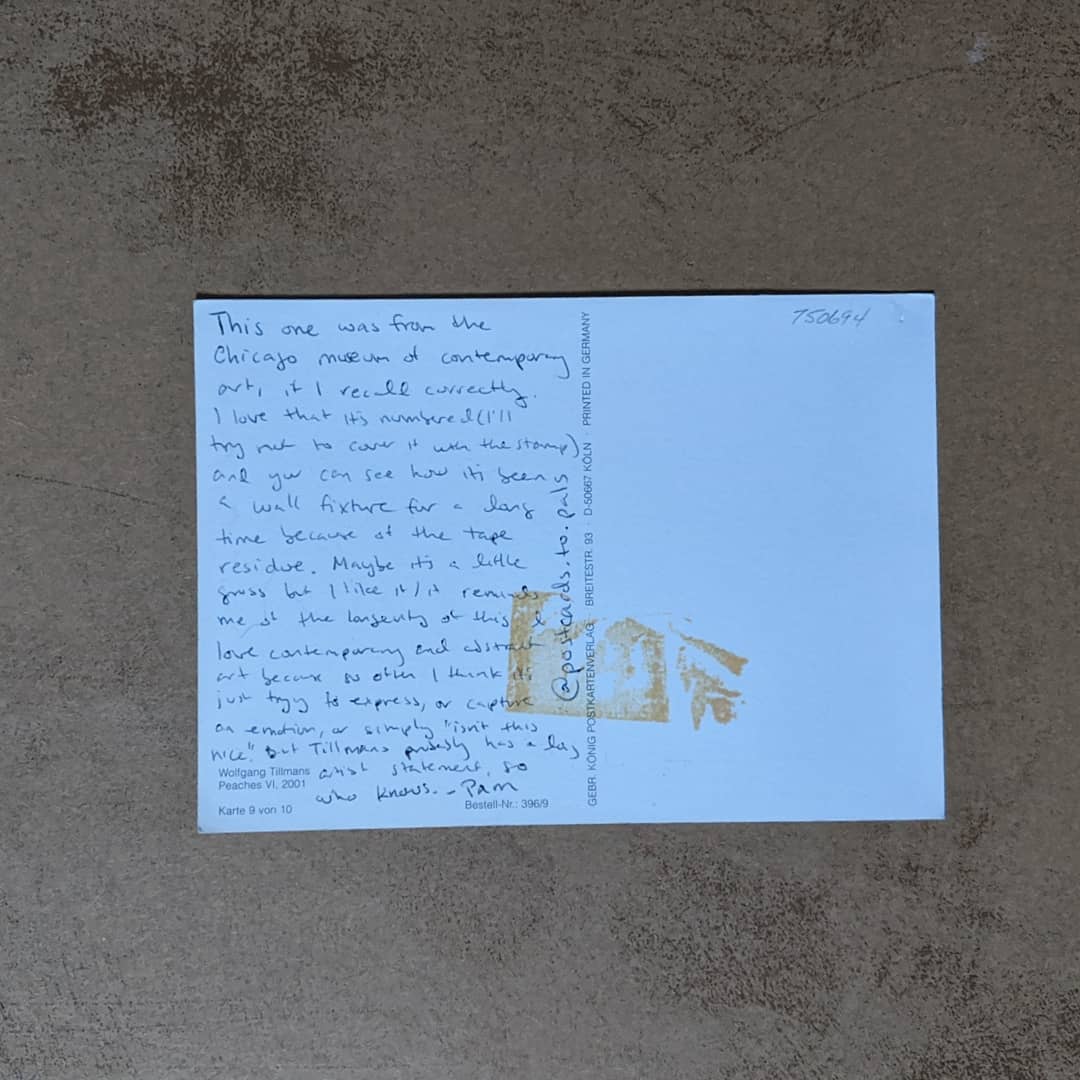 This one was from the
Chicago museum of contemporary
art, if I recall correctly.
I love that it's numbered (I'll
try not to cover it with the stamp)
and you can see how it's been
a wall fixture for a long
time because of the tape
residue. Maybe it's a little
gross but I like it / it reminds
me of the longevity of this. I
love contemporary and abstract
art because so often I think it's
just trying to express, or capture
an emotion, or simply "isn't this
nice." but Tillmans probably has a long
artist statement, so
who knows. - Pam
Wolfgang Tillmans
Peaches VI, 2001
Karte 9 von 10
Bestell-Nr.: 396/9
@postcards.to.pals
GEBR. KÖNIG POSTKARTENVERLAG · BREITESTR. 93 · D-50667 KÖLN · PRINTED IN GERMANY
750694